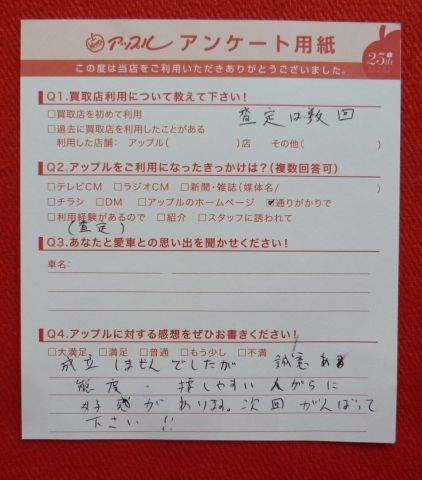 アップル アンケート用紙
この度は当店をご利用いただきありがとうございました。
25th
Q1.買取店利用について教えて下さい!
□買取店を初めて利用 査定は数回
□過去に買取店を利用したことがある
利用した店舗: アップル( )店 その他( )
Q2.アップルをご利用になったきっかけは?(複数回答可)
□テレビCM □ラジオCM □新聞・雑誌(媒体名/ )
□チラシ □DM □アップルのホームページ ☑通りがかりで
□利用経験があるので □紹介 □スタッフに誘われて
(査定)
Q3.あなたと愛車との思い出を聞かせください!
車名:
Q4.アップルに対する感想をぜひお書きください!
□大満足 □満足 □普通 □もう少し □不満
成立しませんでしたが 誠意ある
態度・接しやすい人がらに
好感があります。次回がんばって
下さい!!